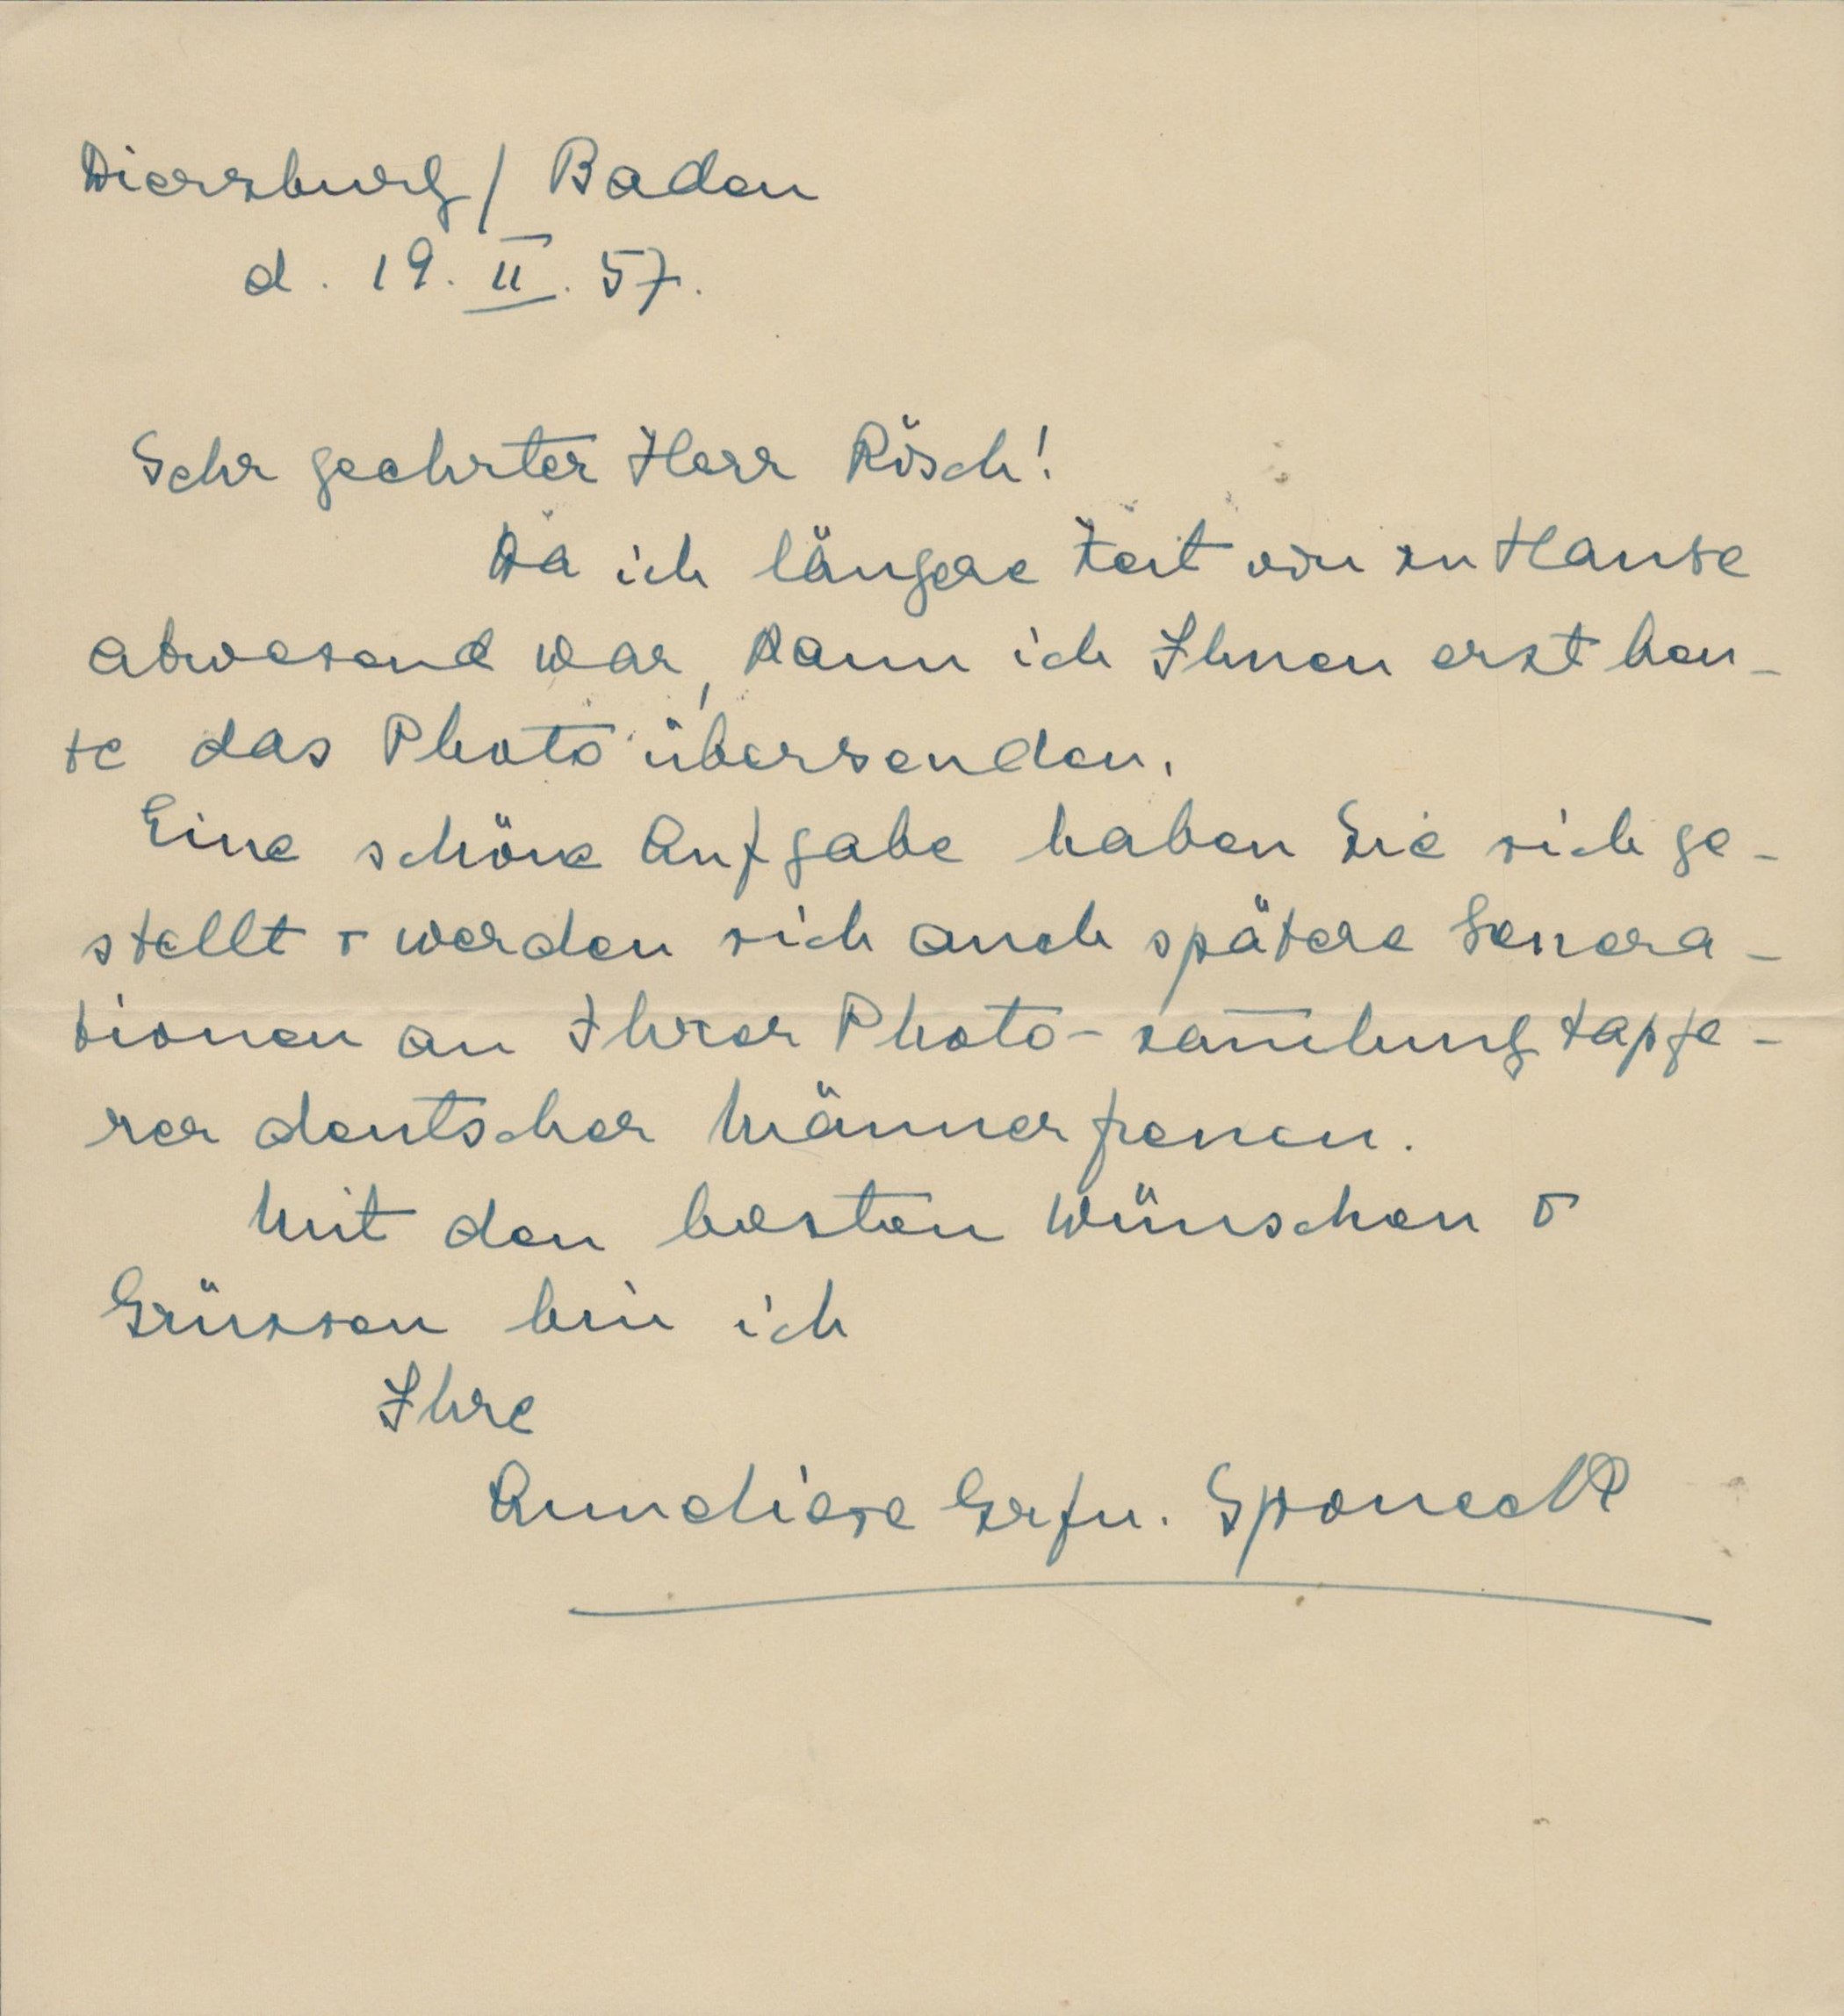 Diersburg / Baden
d. 19. II. 57.
Sehr geehrter Herr Rösch!
Da ich längere Zeit von zu Hause
abwesend war, kann ich Ihnen erst heu-
te das Photo übersenden.
Eine schöne Aufgabe haben Sie sich ge-
stellt + werden sich auch spätere Genera-
tionen an Ihrer Photo-sam̅lung tapfe-
rer deutscher Männer freuen.
Mit den besten Wünschen +
Grüssen bin ich
Ihre
Anneliese Grfn. Sponeck